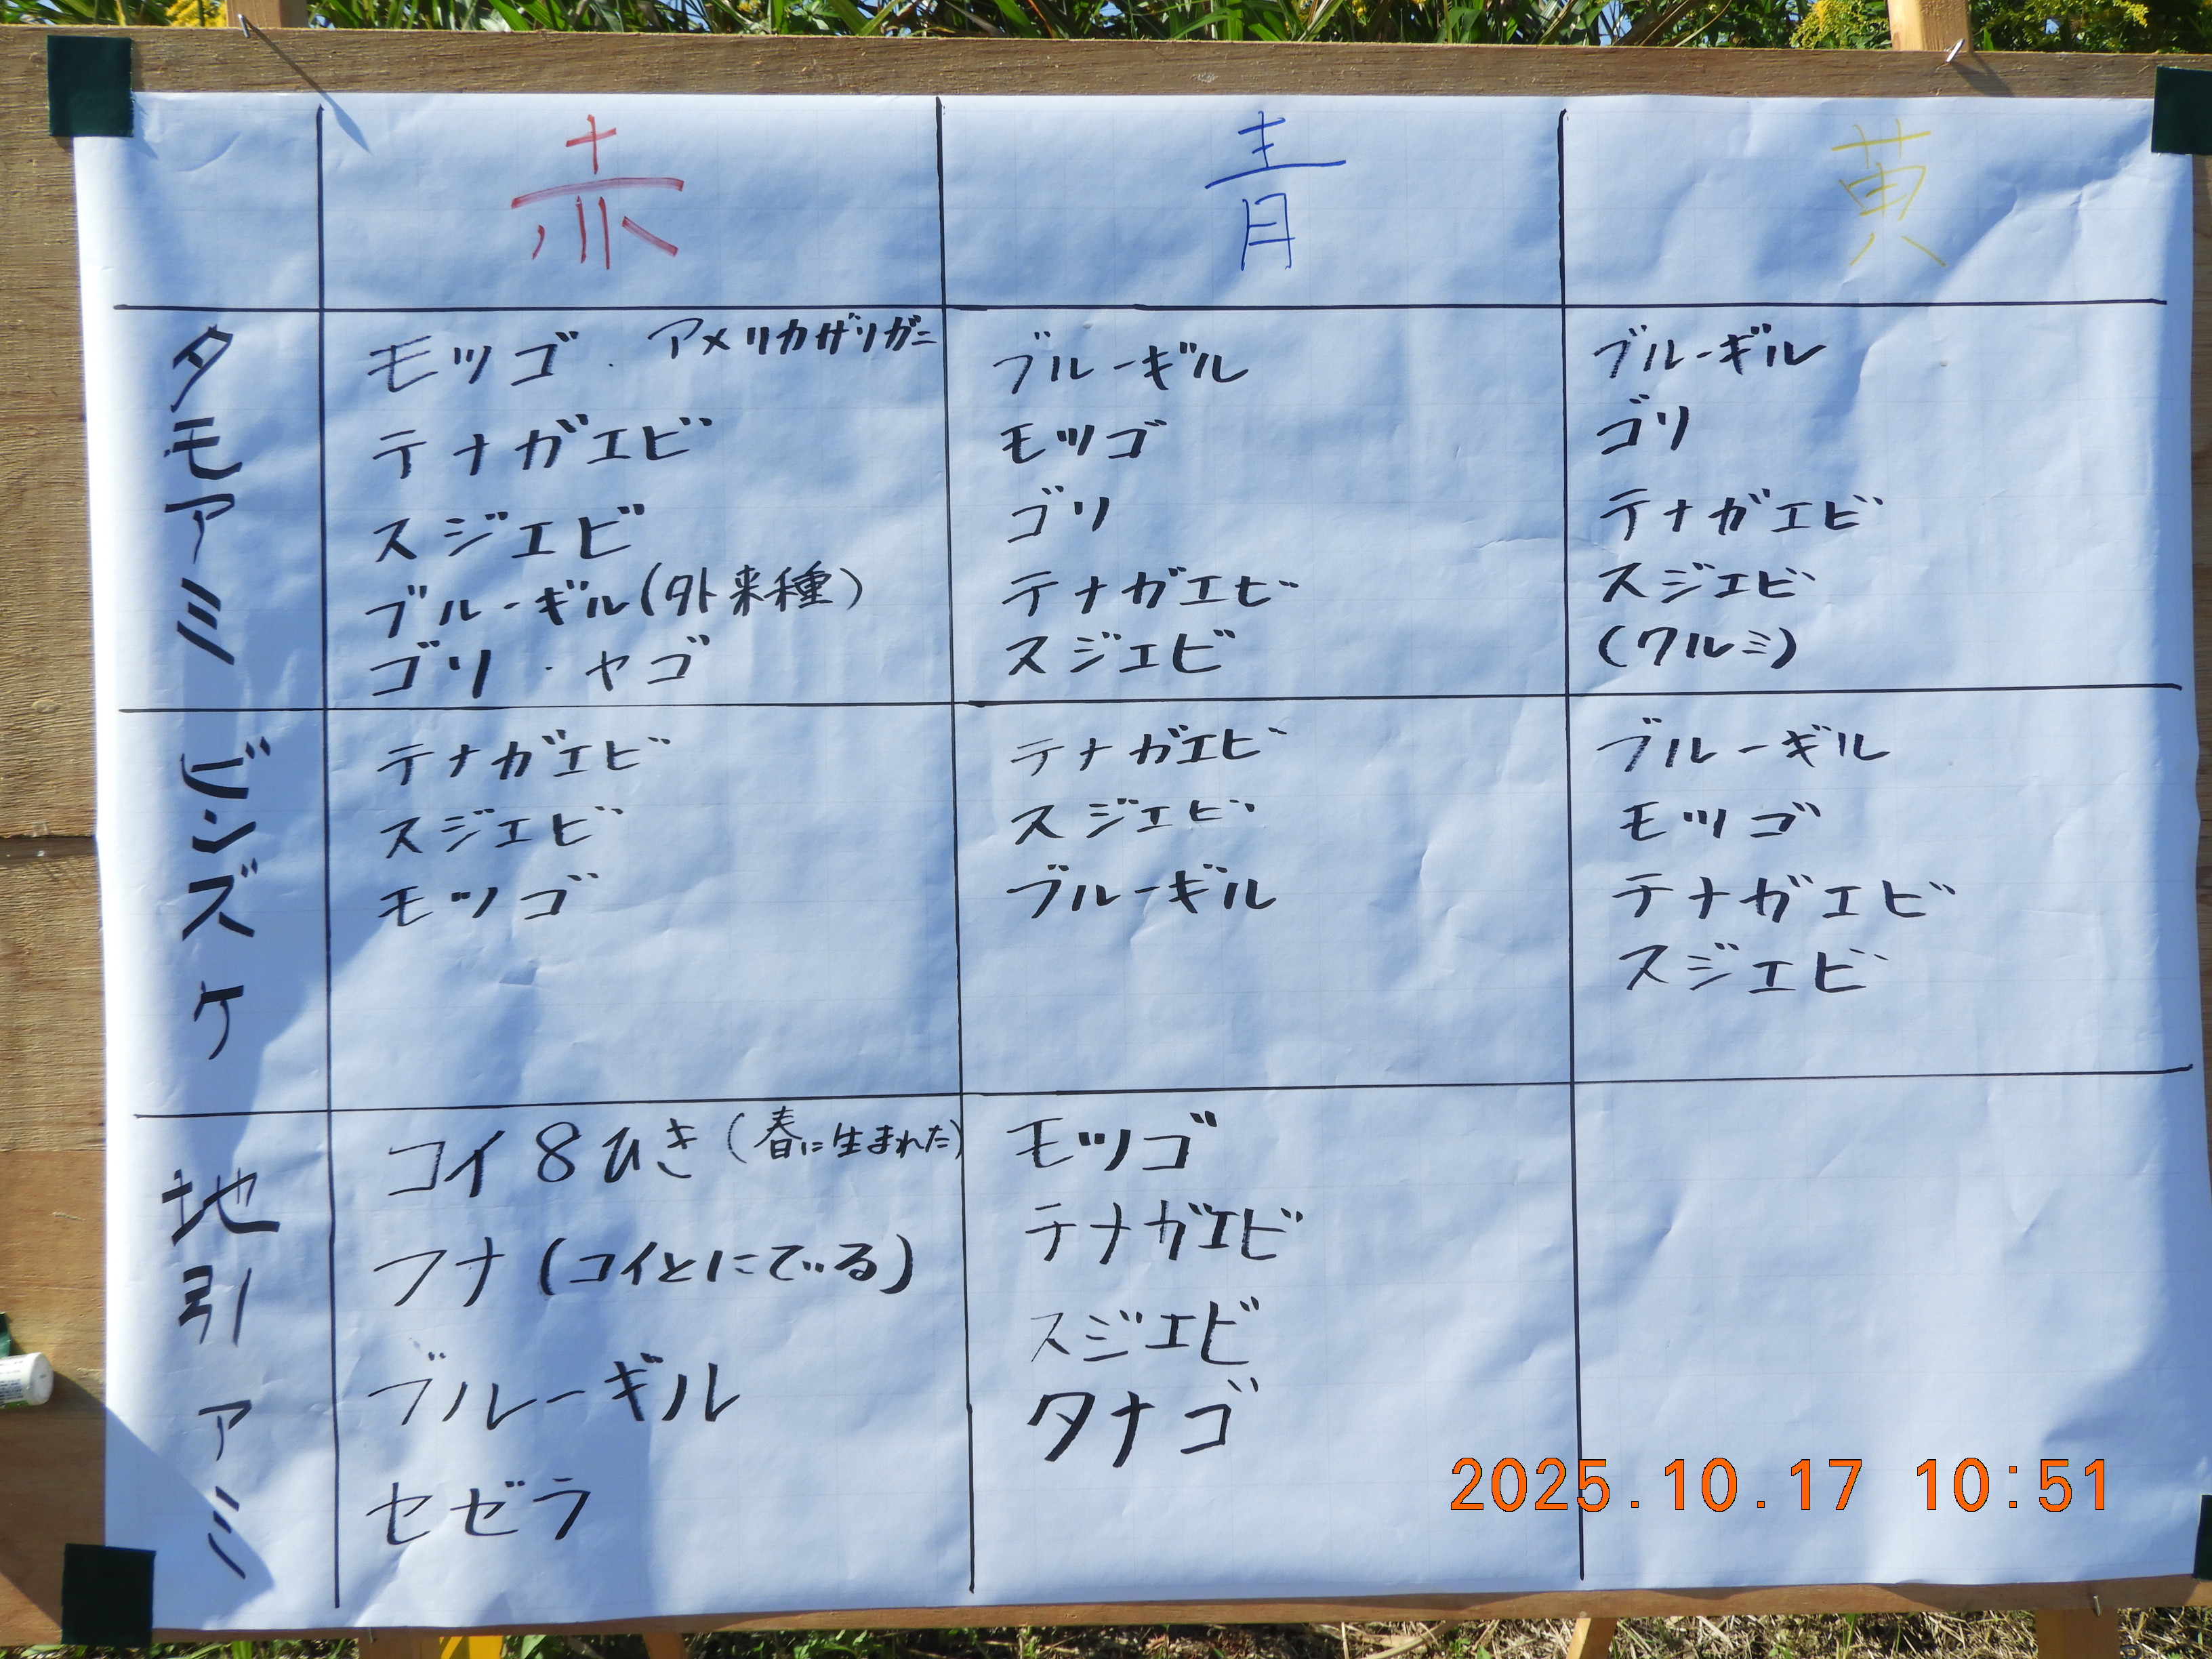 赤 青 黄
タモアミ
モツゴ ・ アメリカザリガニ
テナガエビ
スジエビ
ブルーギル(外来種)
ゴリ ・ ヤゴ
ブルーギル
モツゴ
ゴリ
テナガエビ
スジエビ
ブルーギル
ゴリ
テナガエビ
スジエビ
(クルミ)
ビンズケ
テナガエビ
スジエビ
モツゴ
テナガエビ
スジエビ
ブルーギル
ブルーギル
モツゴ
テナガエビ
スジエビ
地引アミ
コイ 8ひき (春に生まれた)
フナ (コイとにている)
ブルーギル
セゼラ
モツゴ
テナガエビ
スジエビ
タナゴ
2025.10.17 10:51